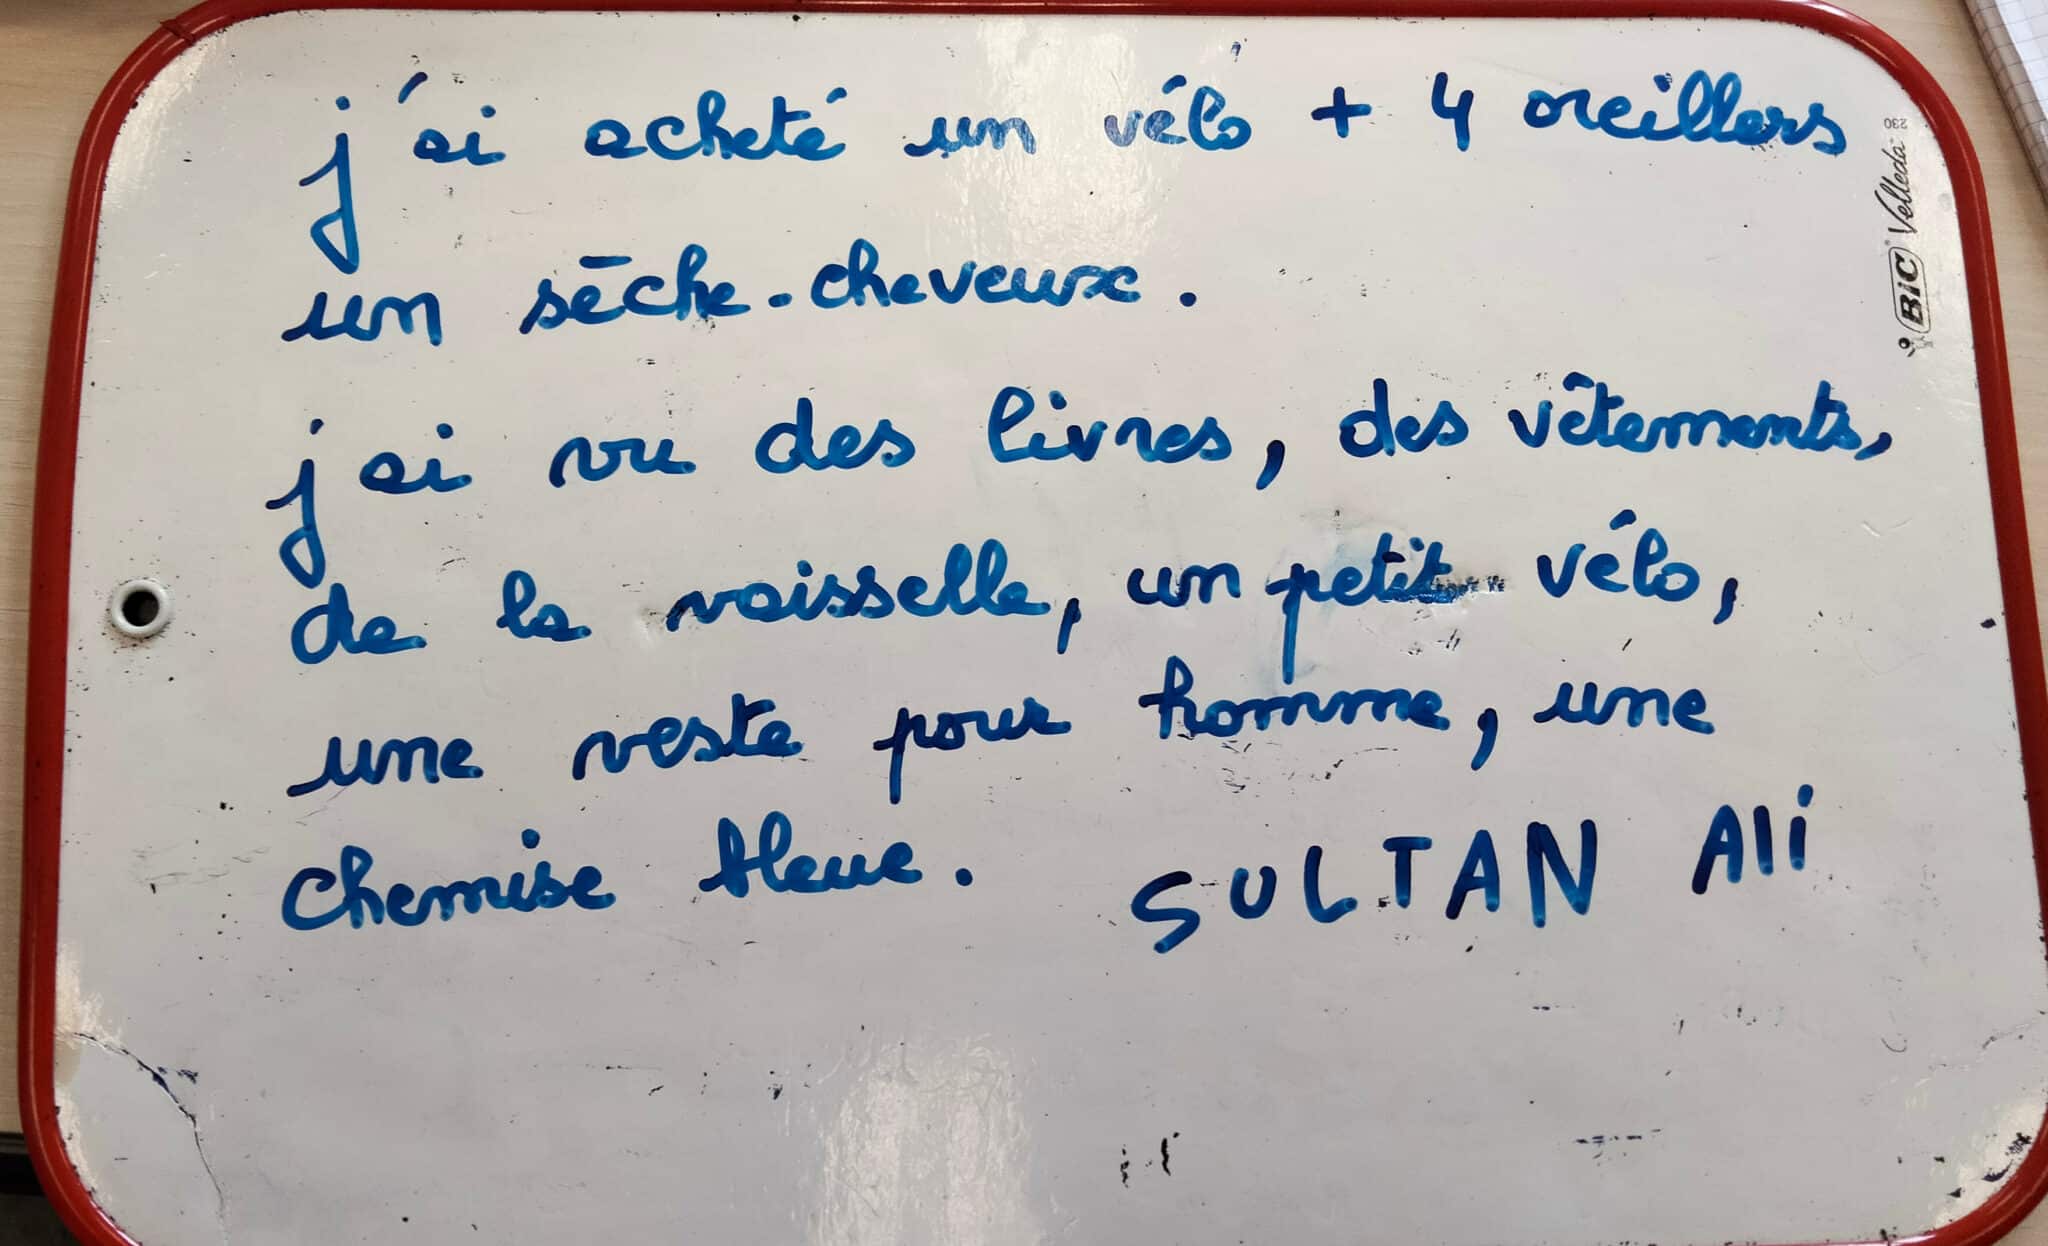 j'ai acheté un vélo + 4 oreillers
un sēche-cheveux.
j ai vu des livres, des vêtements,
de la vaisselle, un petit vélo,
une veste pour homme, une
chemise bleue. SULTAN Ali
BIC Velleda 230